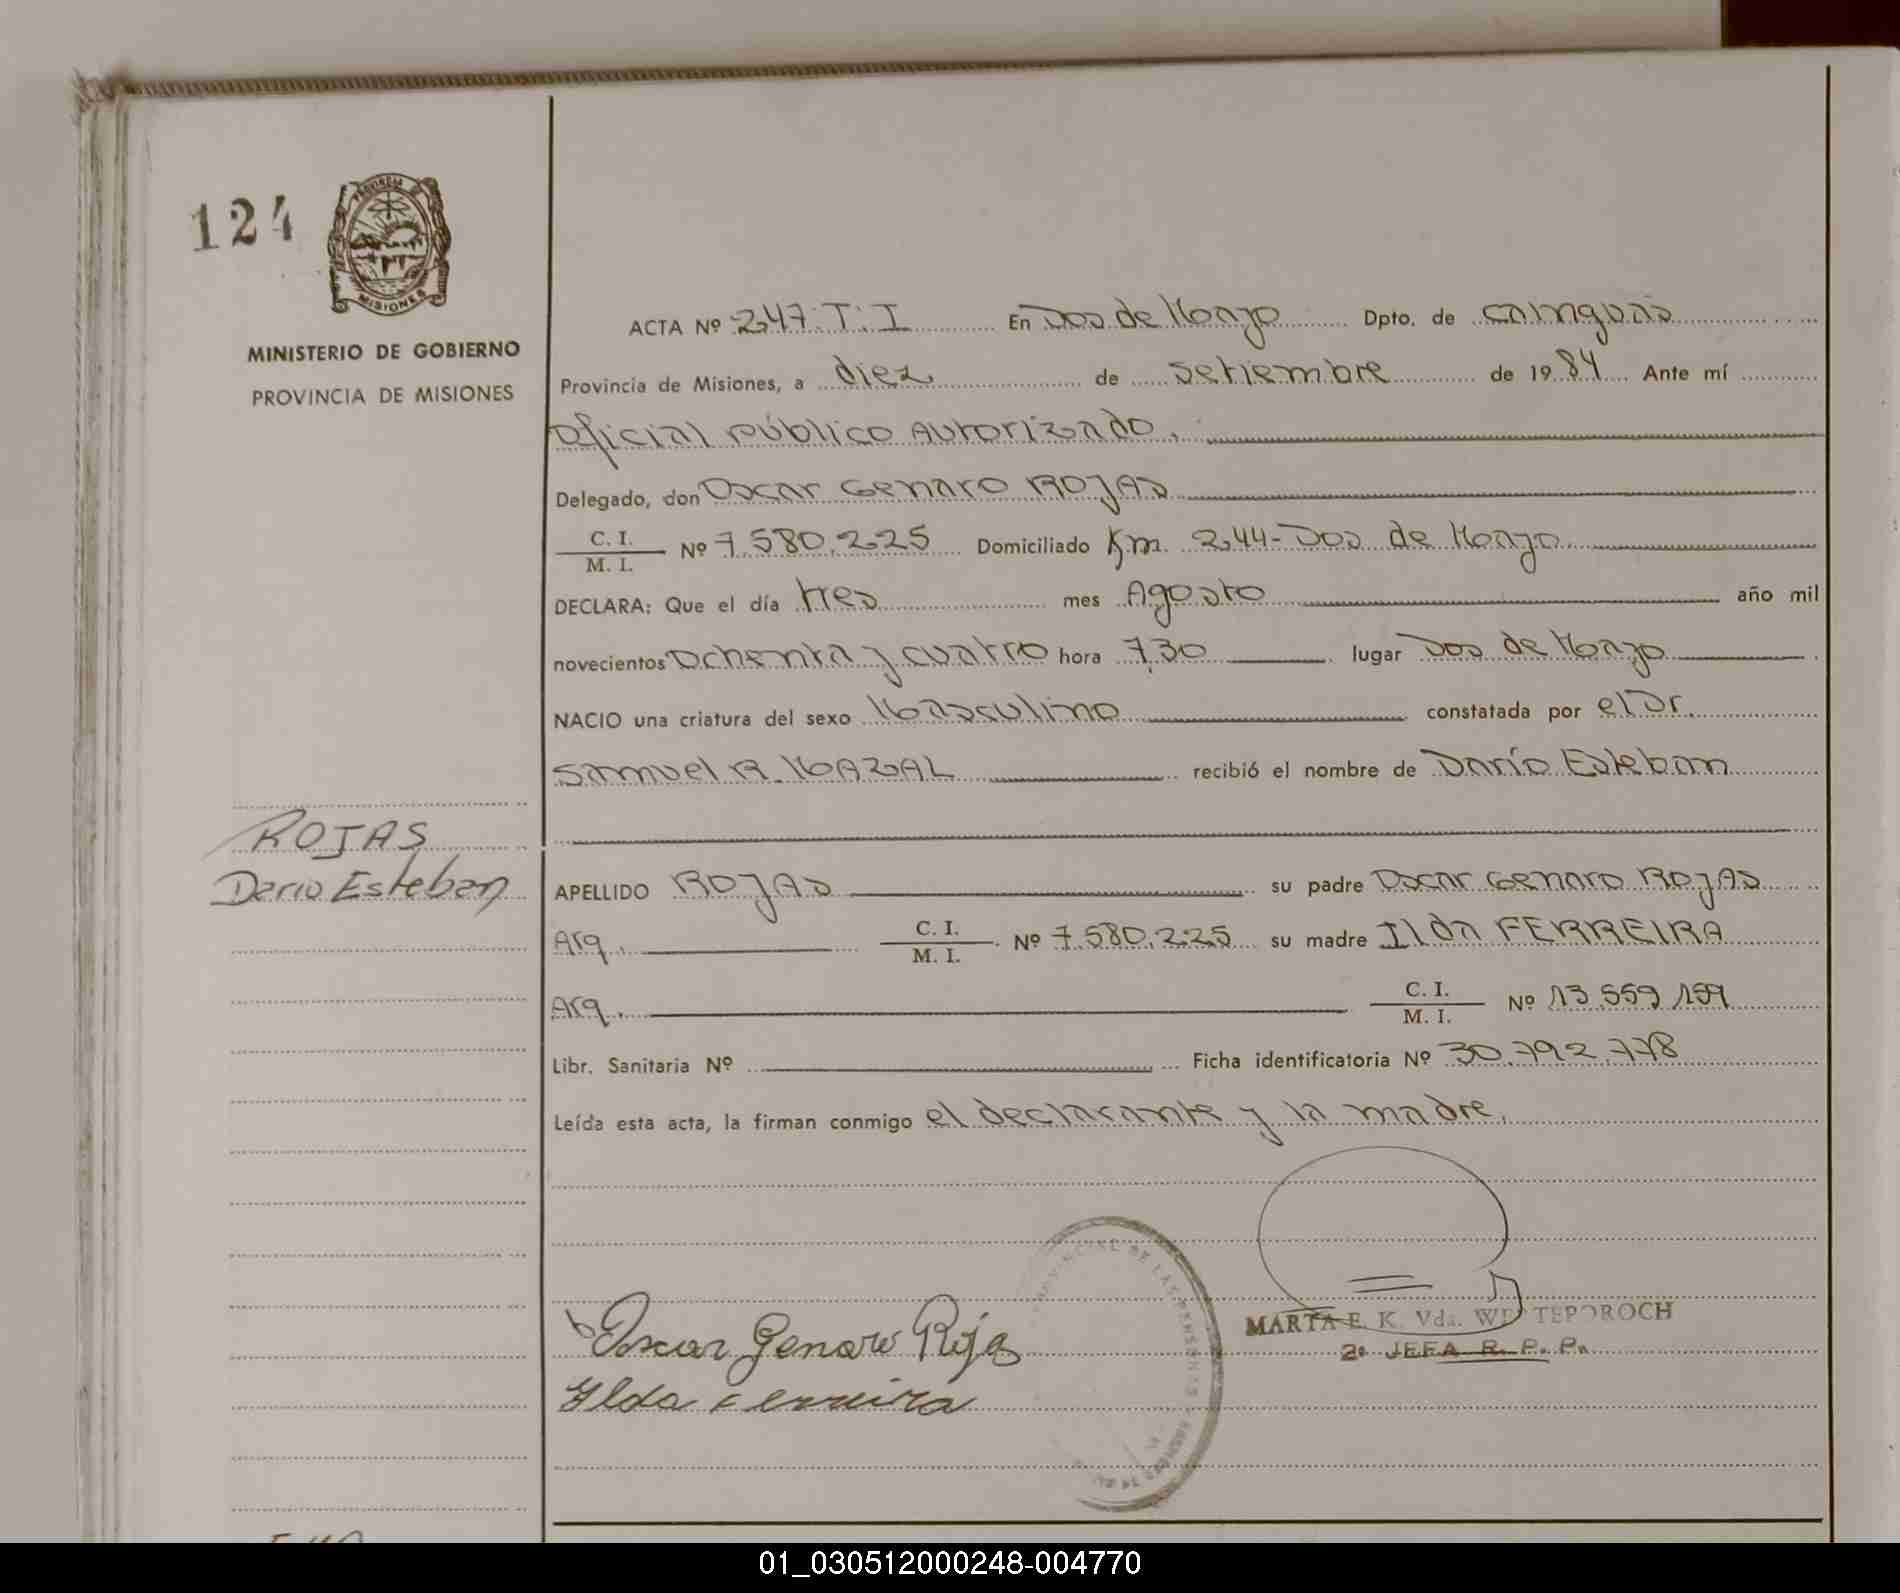 124
PROVINCIA DE
MISIONES
MINISTERIO DE GOBIERNO
PROVINCIA DE MISIONES
ACTA Nº 247 T: I En Dos de Mayo Dpto. de Cainguás
Provincia de Misiones, a diez de setiembre de 1984 Ante mí
Oficial Público Autorizado.
Delegado, don Oscar Genaro ROJAS
C. I.
M. I. Nº 7.580.225 Domiciliado Km. 244-Dos de Mayo
DECLARA: Que el día tres mes Agosto año mil
novecientos Ochenta y cuatro hora 7,30 lugar Dos de Mayo
NACIO una criatura del sexo Masculino constatada por el Dr.
Samuel R. MAZAL recibió el nombre de Darío Esteban
ROJAS
Dario Esteban
APELLIDO ROJAS su padre Oscar Genaro ROJAS
Arq. C. I.
M. I. Nº 7.580.225 su madre Ilda FERREIRA
Arq. C. I.
M. I. Nº 13.559.159
Libr. Sanitaria Nº Ficha identificatoria Nº 30.792.778
Leída esta acta, la firman conmigo el declarante y la madre.
Oscar Genaro Rojas
Ilda Ferreira
PROVINCIAL DE LAS PERSONAS
MARTA E. K. Vda. TEPOROCH
2º JEFA R. P. P.
01_030512000248-004770